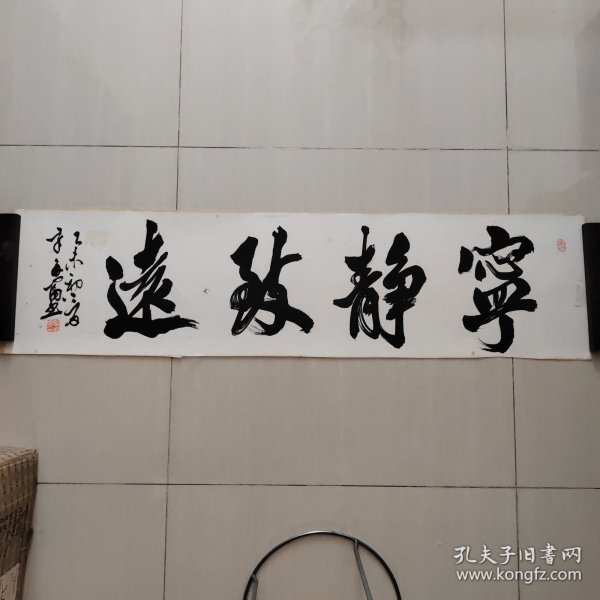 寧靜致遠
乙未初夏
孔夫子旧書网
www.kongfz.com